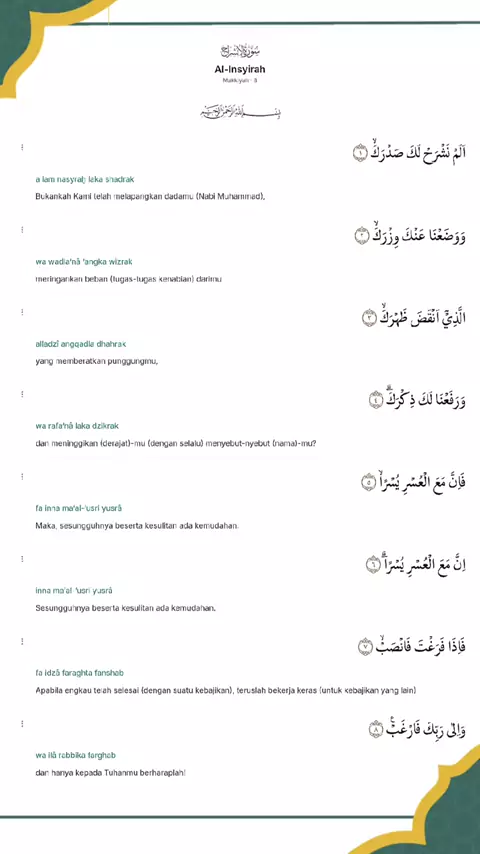 سُوْرَةُ الْاِنْشِرَاحِ
Al-Insyirah
Makkiyah · 8
بِسْمِ اللّٰهِ الرَّحْمٰنِ الرَّحِيْمِ
اَلَمْ نَشْرَحْ لَكَ صَدْرَكَۙ ١
a lam nasyraḫ laka shadrak
Bukankah Kami telah melapangkan dadamu (Nabi Muhammad),
وَوَضَعْنَا عَنْكَ وِزْرَكَۙ ٢
wa wadla‘nâ ‘angka wizrak
meringankan beban (tugas-tugas kenabian) darimu
الَّذِيْٓ اَنْقَضَ ظَهْرَكَۙ ٣
alladzî angqadla dhahrak
yang memberatkan punggungmu,
وَرَفَعْنَا لَكَ ذِكْرَكَۗ ٤
wa rafa‘nâ laka dzikrak
dan meninggikan (derajat)-mu (dengan selalu) menyebut-nyebut (nama)-mu?
فَاِنَّ مَعَ الْعُسْرِ يُسْرًاۙ ٥
fa inna ma‘al-‘usri yusrâ
Maka, sesungguhnya beserta kesulitan ada kemudahan.
اِنَّ مَعَ الْعُسْرِ يُسْرًاۗ ٦
inna ma‘al-‘usri yusrâ
Sesungguhnya beserta kesulitan ada kemudahan.
فَاِذَا فَرَغْتَ فَانْصَبْۙ ٧
fa idzâ faraghta fanshab
Apabila engkau telah selesai (dengan suatu kebajikan), teruslah bekerja keras (untuk kebajikan yang lain)
وَاِلٰى رَبِّكَ فَارْغَبْࣖ ٨
wa ilâ rabbika farghab
dan hanya kepada Tuhanmu berharaplah!